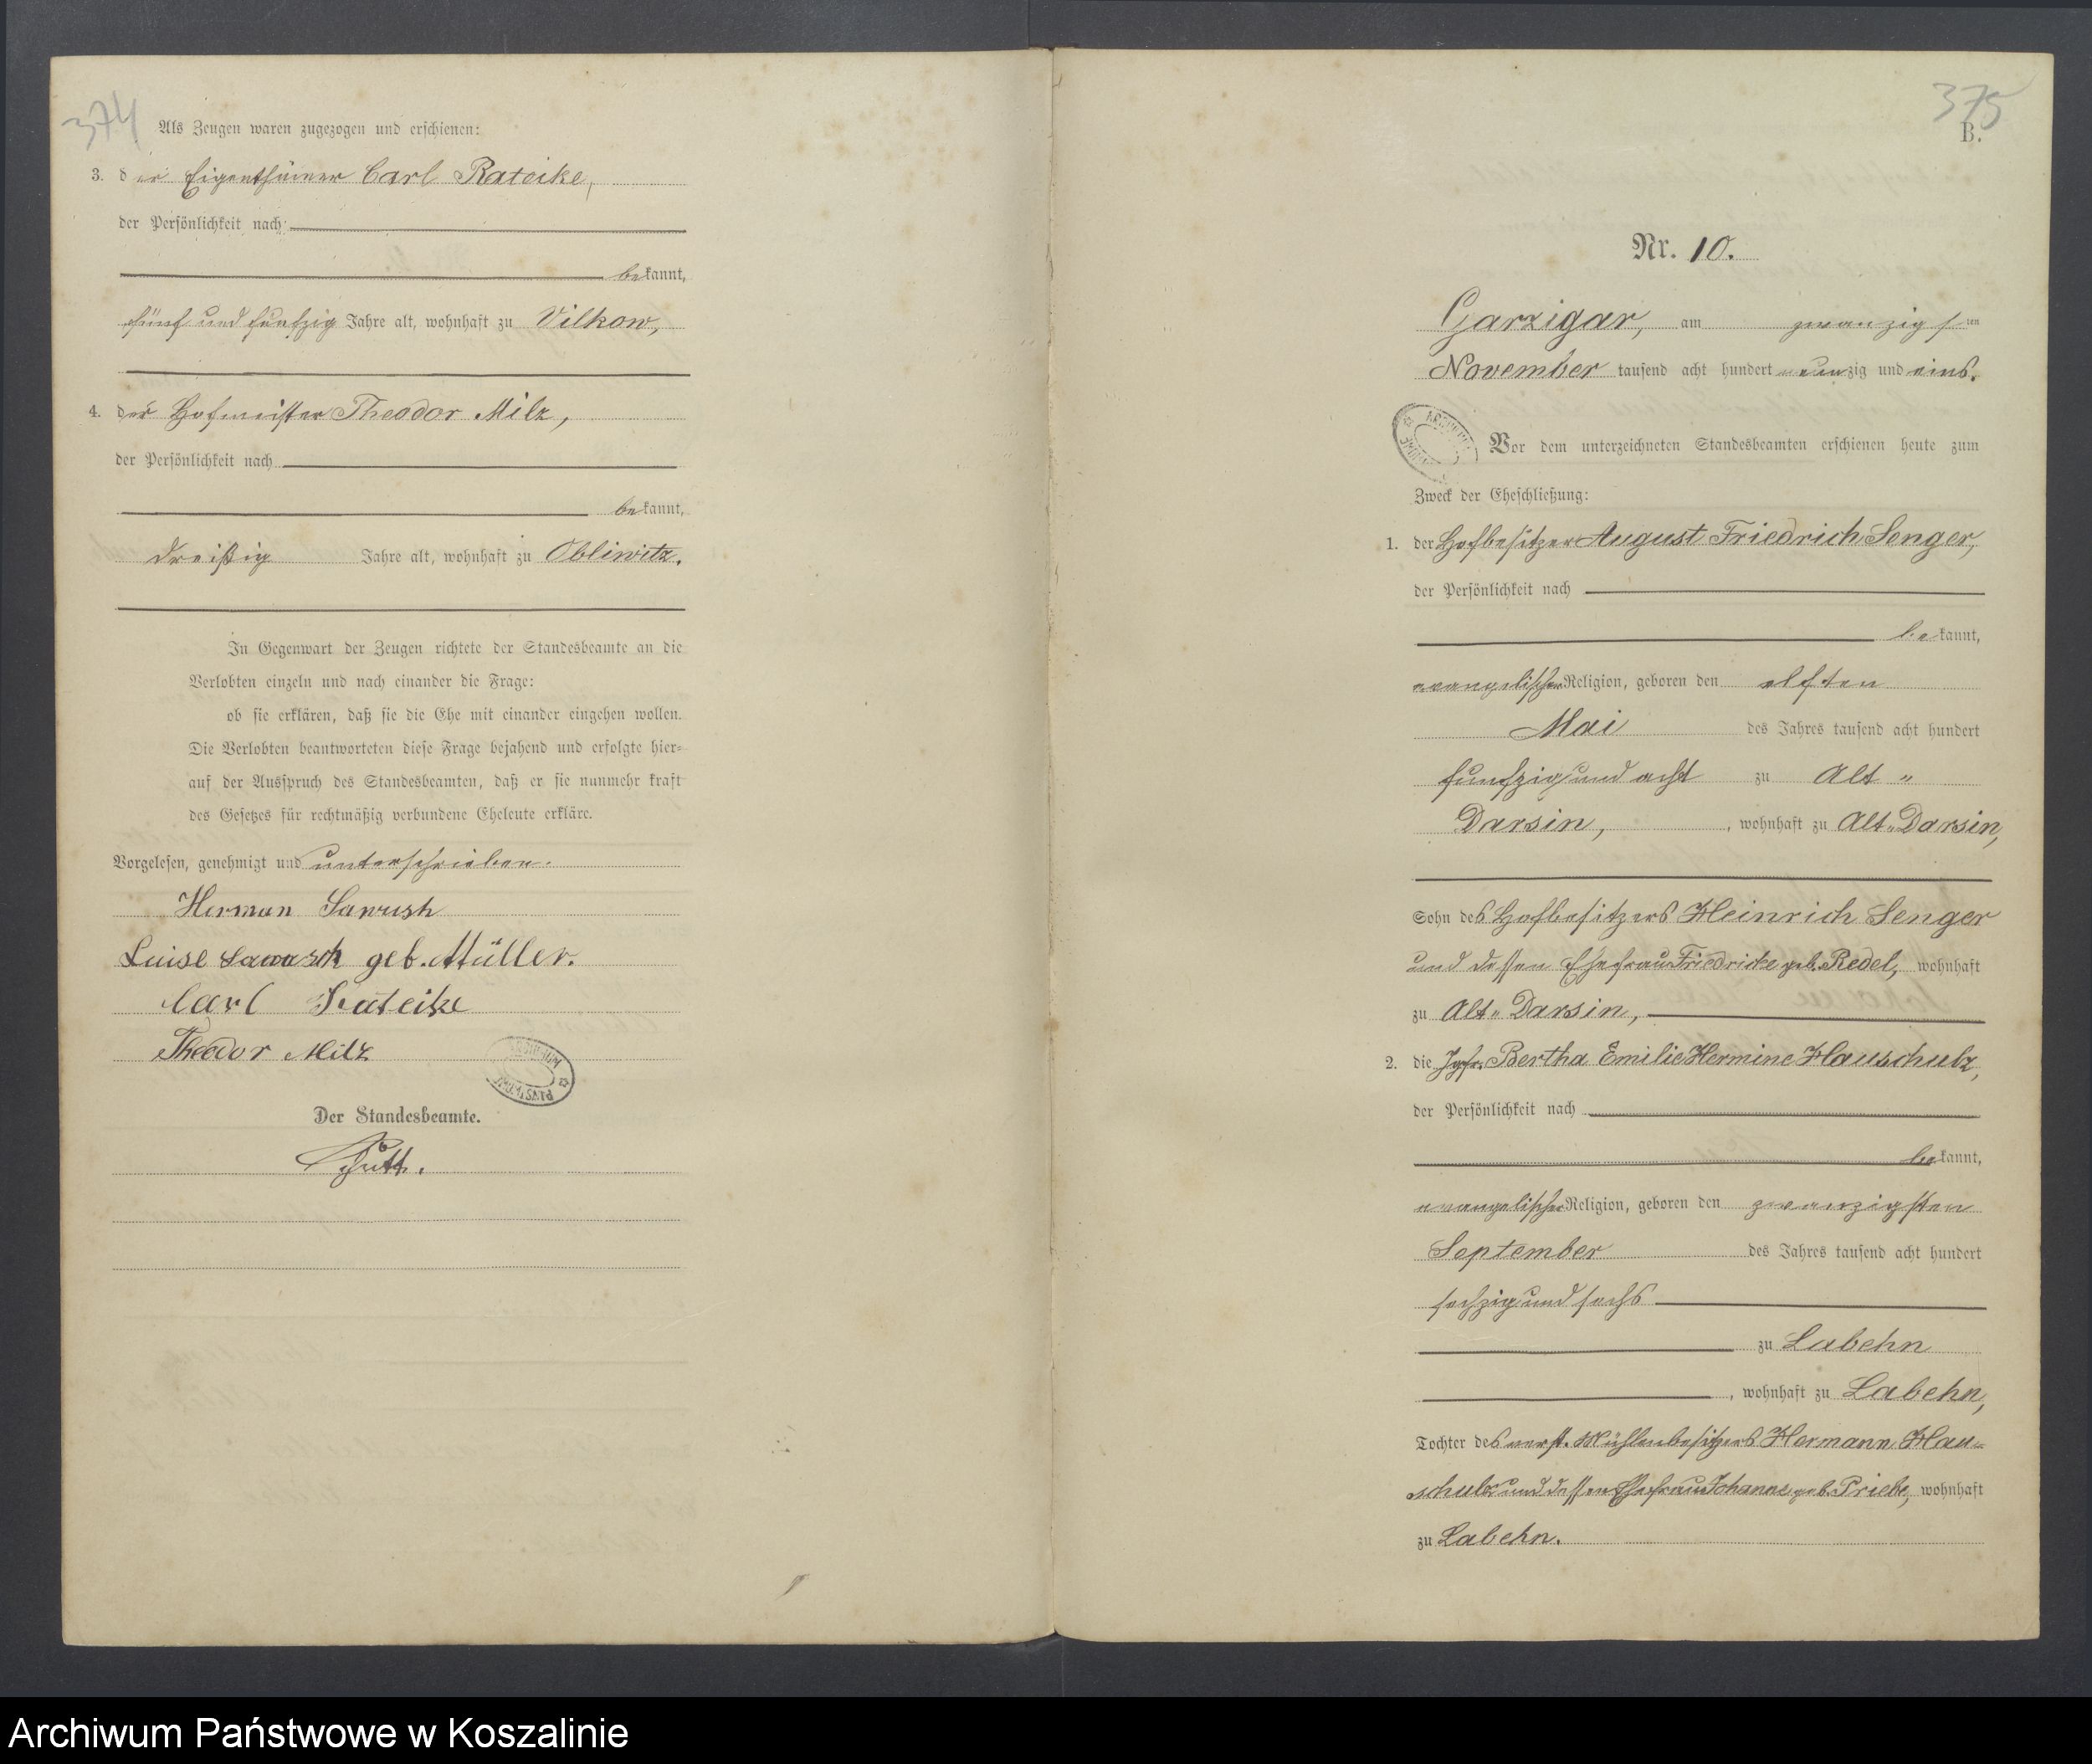 374
Als Zeugen waren zugezogen und erschienen:
3. der Eigenthümer Carl Rateike,
der Persönlichkeit nach
bekannt,
fünf und funfzig Jahre alt, wohnhaft zu Vilkow,
4. der Hofmeister Theodor Milz,
der Persönlichkeit nach
bekannt,
dreißig Jahre alt, wohnhaft zu Obliwitz.
In Gegenwart der Zeugen richtete der Standesbeamte an die
Verlobten einzeln und nach einander die Frage:
ob sie erklären, daß sie die Ehe mit einander eingehen wollen.
Die Verlobten beantworteten diese Frage bejahend und erfolgte hier-
auf der Ausspruch des Standesbeamten, daß er sie nunmehr kraft
des Gesetzes für rechtmäßig verbundene Eheleute erkläre.
Vorgelesen, genehmigt und unterschrieben.
Herman Sawush
Luise geb. Müller.
Carl Rateike
Theodor Milz
Der Standesbeamte.
375
B.
Nr. 10.
Garzigar, am zwanzigsten
November tausend acht hundert neunzig und eins.
Vor dem unterzeichneten Standesbeamten erschienen heute zum
Zweck der Eheschließung:
1. der Hofbesitzer August Friedrich Senger,
der Persönlichkeit nach
bekannt,
evangelischer Religion, geboren den elften
Mai des Jahres tausend acht hundert
funfzig und acht zu Alt„
Darsin, , wohnhaft zu Alt„Darsin,
Sohn des Hofbesitzers Heinrich Senger
und dessen Ehefrau Friedricke geb. Redel, wohnhaft
zu Alt„Darsin,
2. die Jgfr. Bertha Emilie Hermine Hauschulz,
der Persönlichkeit nach
bekannt,
evangelischer Religion, geboren den zwanzigsten
September des Jahres tausend acht hundert
sechzig und sechs
zu Labehn
, wohnhaft zu Labehn,
Tochter des verst. Mühlenbesitzers Hermann Hau-
schulz und dessen Ehefrau Johanne geb. Priebe, wohnhaft
zu Labehn.
Archiwum Państwowe w Koszalinie